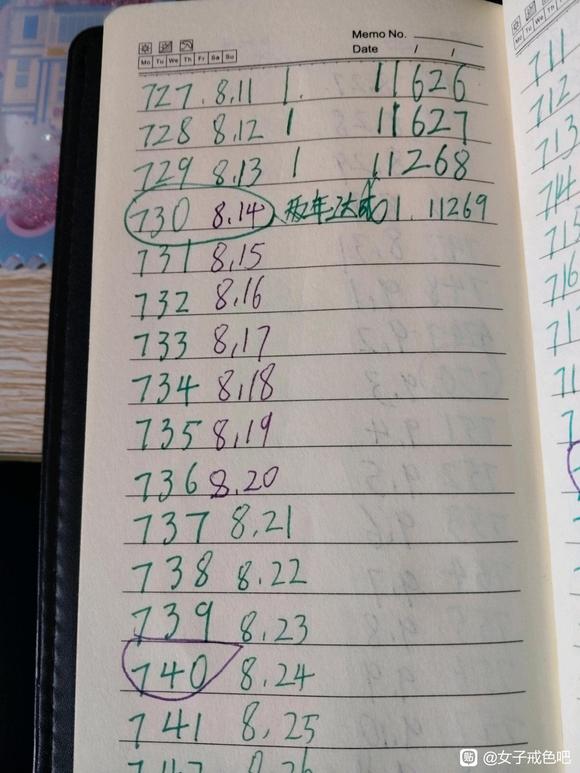 Memo No.
Mo Tu We Th Fr Sa Su
Date / /
727. 8.11 1. 11626
728 8.12 1 11627
729 8.13 1 11268
730 8.14 两年达成 01. 11269
731 8.15
732 8.16
733 8.17
734 8.18
735 8.19
736 8.20
737 8.21
738 8.22
739 8.23
740 8.24
741 8.25
711
712
713
714
715
716
@女子戒色吧